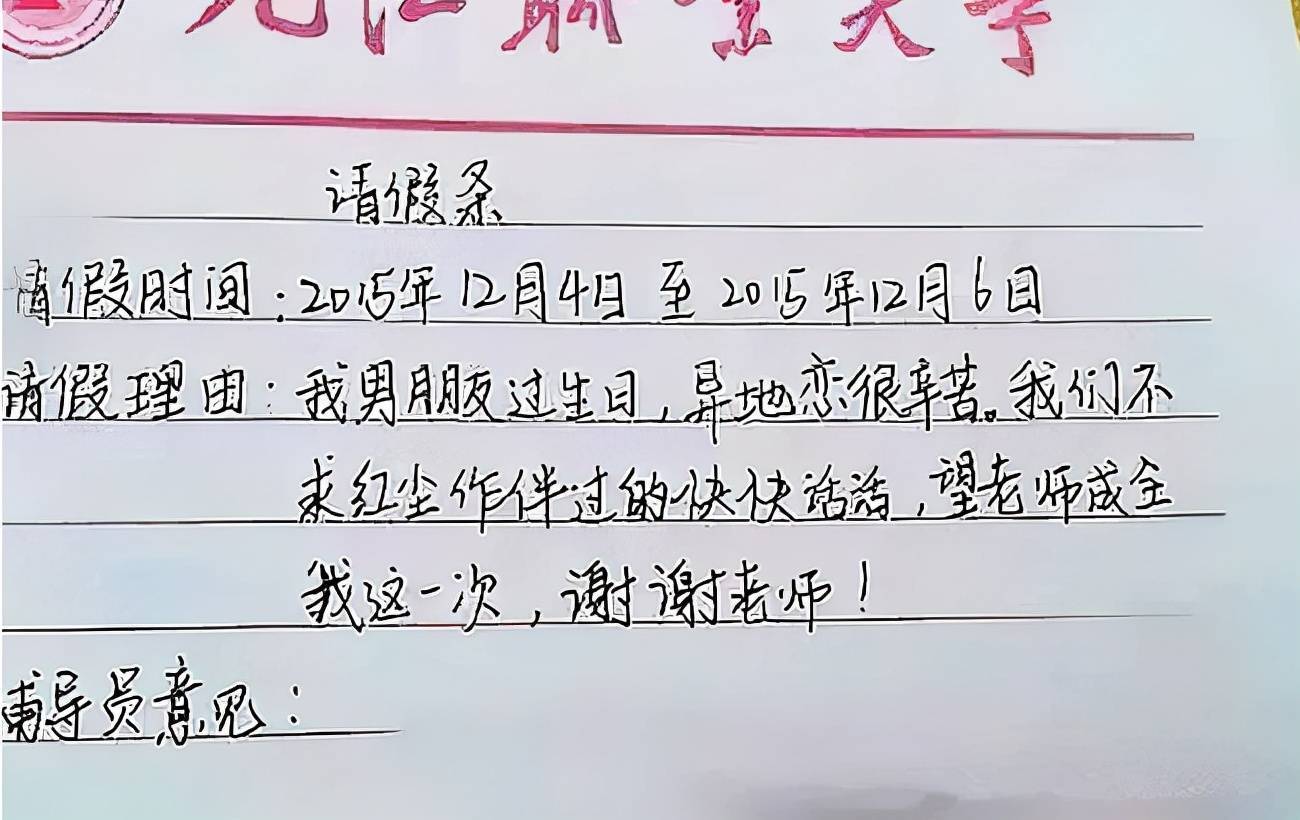 请假条
请假时间：2015年12月4日至2015年12月6日
请假理由：我男朋友过生日，异地恋很辛苦。我们不
求红尘作伴过的快快话话，望老师成全
我这一次，谢谢老师！
辅导员意见：